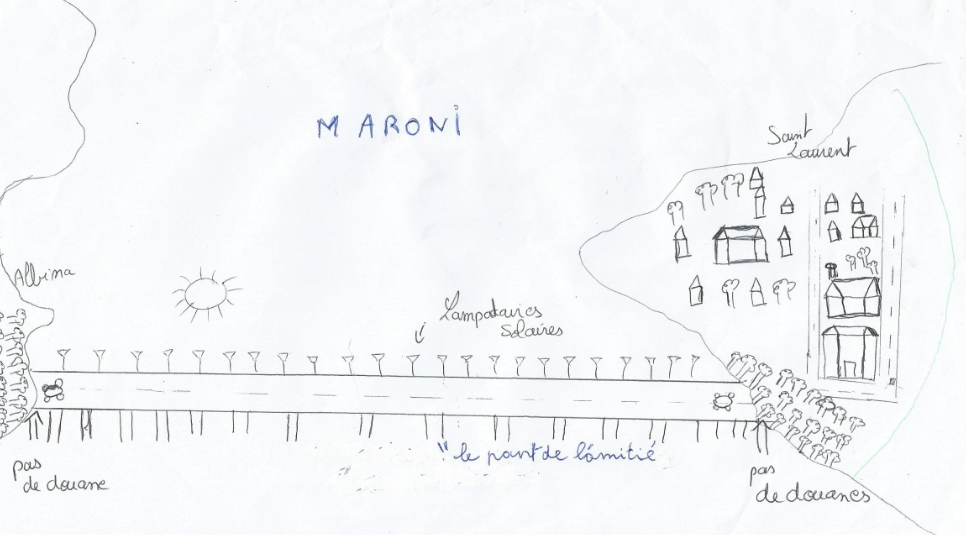 MARONI
Saint
Laurent
Albina
Lampadaires
Solaires
"le pont de l'amitié
pas
de douane
pas
de douanes